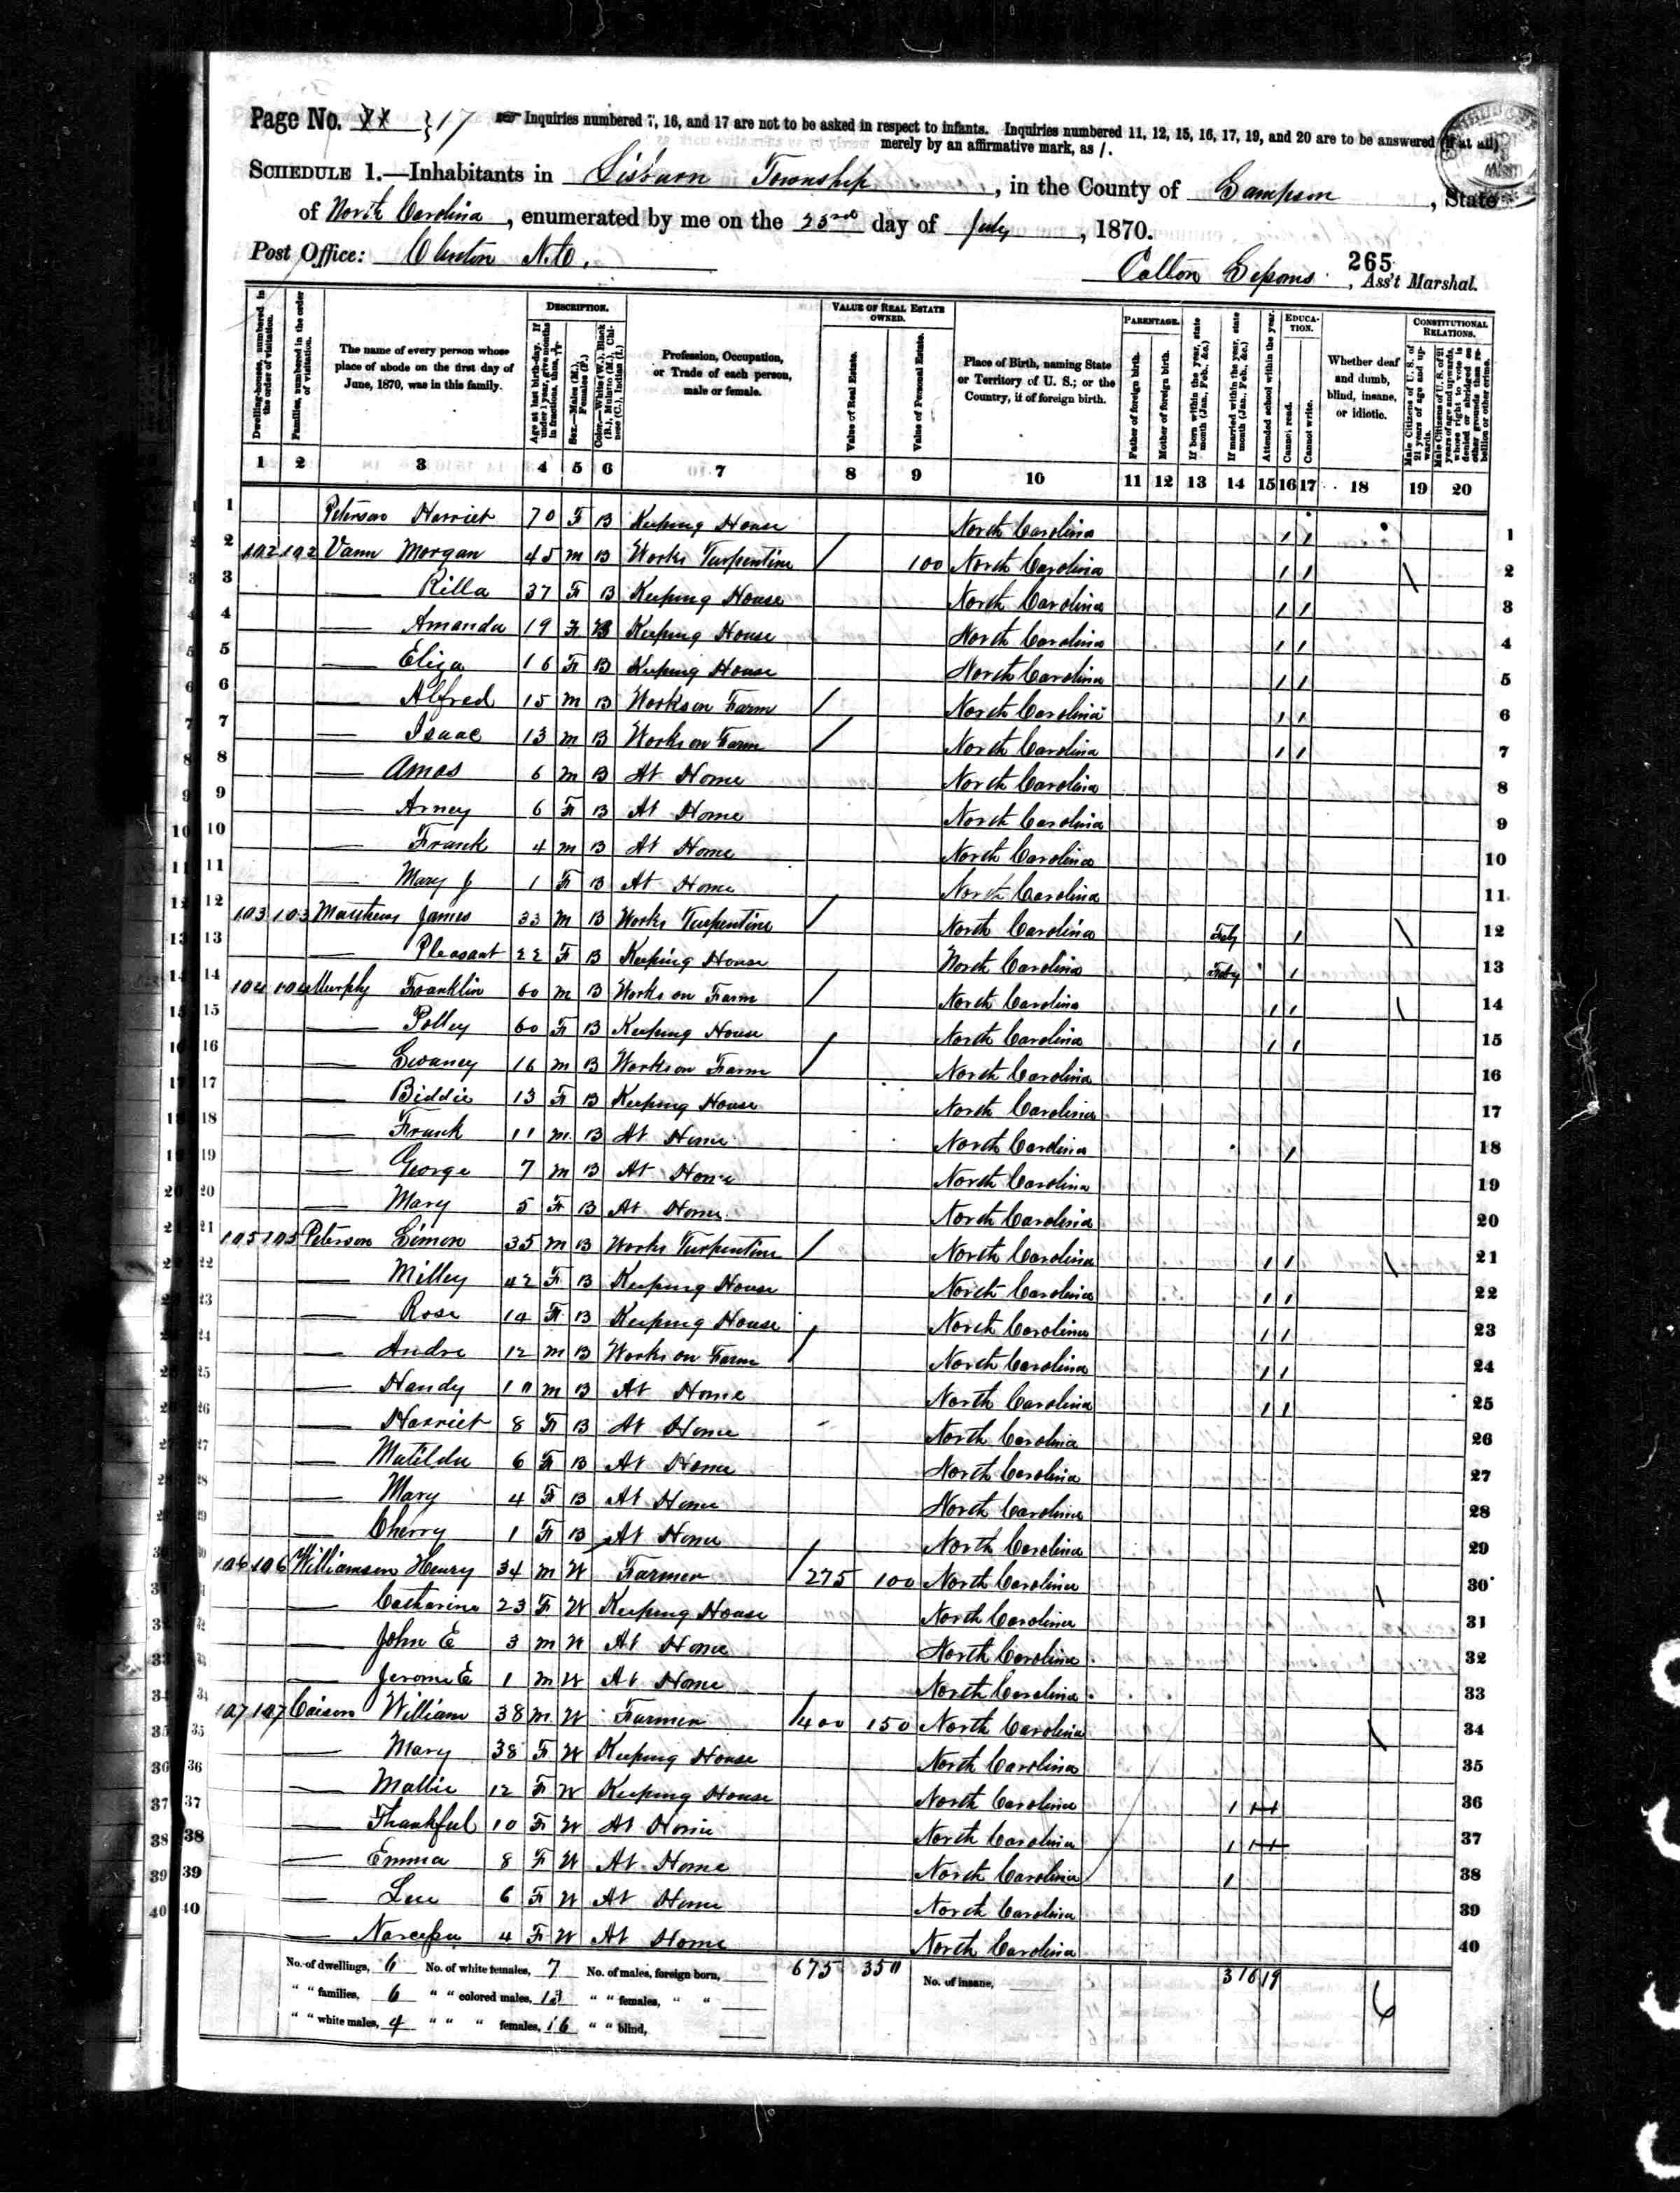 Page No. XX }17 Inquiries numbered 7, 16, and 17 are not to be asked in respect to infants. Inquiries numbered 11, 12, 15, 16, 17, 19, and 20 are to be answered (if at all)
merely by an affirmative mark, as /.
SCHEDULE 1.—Inhabitants in Lisburn Township, in the County of Sampson, State
of North Carolina, enumerated by me on the 23rd day of July, 1870.
Post Office: Clinton N.C.
265
Calton Sepons, Ass't Marshal.
Dwelling-houses, numbered in the order of visitation.
Families, numbered in the order of visitation.
The name of every person whose place of abode on the first day of June, 1870, was in this family.
DESCRIPTION.
Age at last birth-day. If under 1 year, give months in fractions, thus, 3/12
Sex.—Males (M.), Females (F.)
Color.—White (W.), Black (B.), Mulatto (M.), Chinese (C.), Indian (I.)
Profession, Occupation, or Trade of each person, male or female.
VALUE OF REAL ESTATE OWNED.
Value of Real Estate.
Value of Personal Estate.
Place of Birth, naming State or Territory of U. S.; or the Country, if of foreign birth.
PARENTAGE.
Father of foreign birth.
Mother of foreign birth.
If born within the year, state month (Jan., Feb., &c.)
If married within the year, state month (Jan., Feb., &c.)
Attended school within the year.
EDUCATION.
Cannot read.
Cannot write.
Whether deaf and dumb, blind, insane, or idiotic.
CONSTITUTIONAL RELATIONS.
Male Citizens of U. S. of 21 years of age and upwards.
Male Citizens of U. S. of 21 years of age and upwards, whose right to vote is denied or abridged on other grounds than rebellion or other crime.
1 2 3 4 5 6 7 8 9 10 11 12 13 14 15 16 17 18 19 20
1 Peterson Harriet 70 F B Keeping House North Carolina 1 1 1
2 102 102 Vann Morgan 45 m B Works Turpentine / 100 North Carolina 1 1 \ 2
3 — Killa 37 F B Keeping House North Carolina 1 1 3
4 — Amanda 19 F B Keeping House North Carolina 1 1 4
5 — Eliza 16 F B Keeping House North Carolina 1 1 5
6 — Alfred 15 m B Works on Farm / North Carolina 1 1 6
7 — Isaac 13 m B Works on Farm / North Carolina 1 1 7
8 — Amos 6 m B At Home North Carolina 8
9 — Arney 6 F B At Home North Carolina 9
10 — Frank 4 m B At Home North Carolina 10
11 — Mary J 1 F B At Home North Carolina 11
12 103 103 Matthews James 33 m B Works Turpentine / North Carolina Feby 1 \ 12
13 — Pleasant 22 F B Keeping House North Carolina Feby 1 13
14 104 104 Murphy Franklin 60 m B Works on Farm / North Carolina 1 1 \ 14
15 — Polley 60 F B Keeping House North Carolina 1 1 15
16 — Swaney 16 m B Works on Farm / North Carolina 16
17 — Biddie 13 F B Keeping House North Carolina 17
18 — Frank 11 m B At Home North Carolina 1 18
19 — George 7 m B At Home North Carolina 19
20 — Mary 5 F B At Home North Carolina 20
21 105 105 Peterson Simon 35 m B Works Turpentine / North Carolina 1 1 \ 21
22 — Milley 42 F B Keeping House North Carolina 1 1 22
23 — Rose 14 F B Keeping House North Carolina 1 1 23
24 — Andre 12 m B Works on Farm / North Carolina 1 1 24
25 — Handy 10 m B At Home North Carolina 1 1 25
26 — Harriet 8 F B At Home North Carolina 26
27 — Matilda 6 F B At Home North Carolina 27
28 — Mary 4 F B At Home North Carolina 28
29 — Cherry 1 F B At Home North Carolina 29
30 106 106 Williamson Henry 34 m W Farmer / 275 100 North Carolina \ 30
31 — Catharine 23 F W Keeping House North Carolina 31
32 — John E 3 m W At Home North Carolina 32
33 — Jerome E 1 m W At Home North Carolina 33
34 107 107 Caison William 38 m W Farmer / 400 150 North Carolina \ 34
35 — Mary 38 F W Keeping House North Carolina 35
36 — Mallie 12 F W Keeping House North Carolina 1 36
37 — Thankful 10 F W At Home North Carolina 1 37
38 — Emma 8 F W At Home North Carolina 1 38
39 — Lue 6 F W At Home North Carolina 39
40 — 4 F W At Home North Carolina 40
No. of dwellings, 6 No. of white females, 7 No. of males, foreign born, 675 350 No. of insane, 3 16 19
" " families, 6 " " colored males, 13 " " females, " " 6
" " white males, 4 " " " females, 16 " " blind,